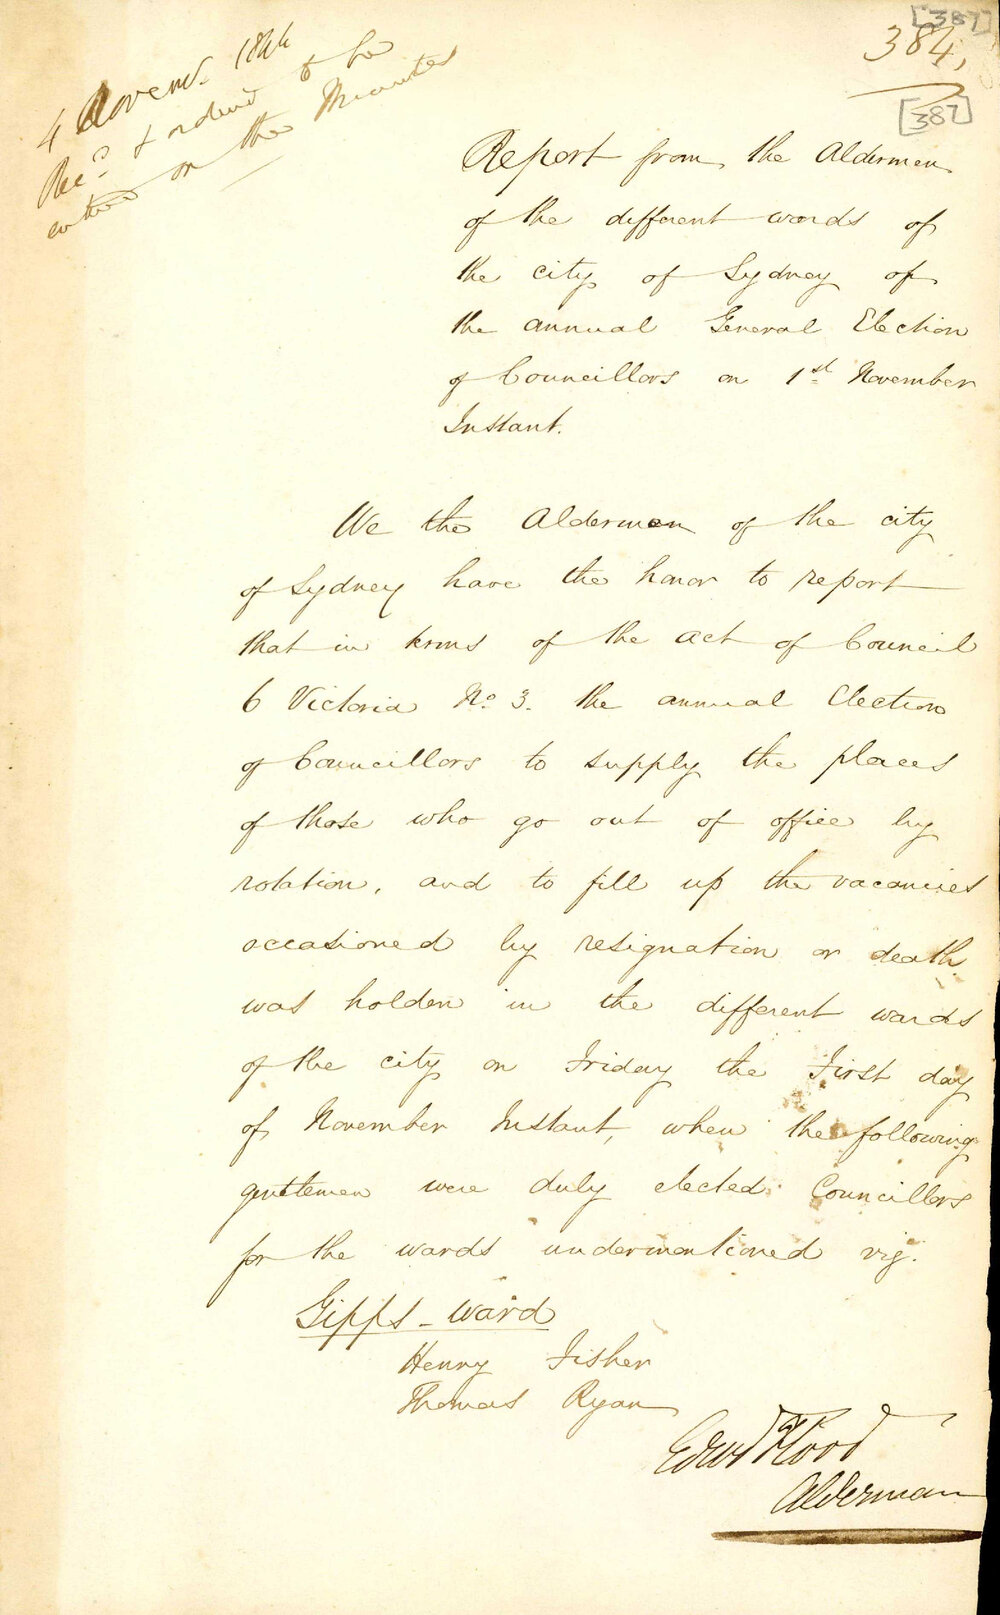 [387]
384,
[387]
4 Novemr. 1844
Recd. & ordered to be
entered on the Minutes
Report from the Aldermen
of the different wards of
the city of Sydney of
the annual General Election
of Councillors on 1st November
Instant.
We the Aldermen of the city
of Sydney have the honor to report
that in terms of the act of Council
6 Victoria No. 3. the annual Election
of Councillors to supply the places
of those who go out of office by
rotation, and to fill up the vacancies
occasioned by resignation or death
was holden in the different wards
of the city on Friday the First day
of November Instant, when the following
gentlemen were duly elected Councillors
for the wards undermentioned viz.
Gipps-ward
Henry Fisher
Thomas Ryan
Edwd Flood
Alderman